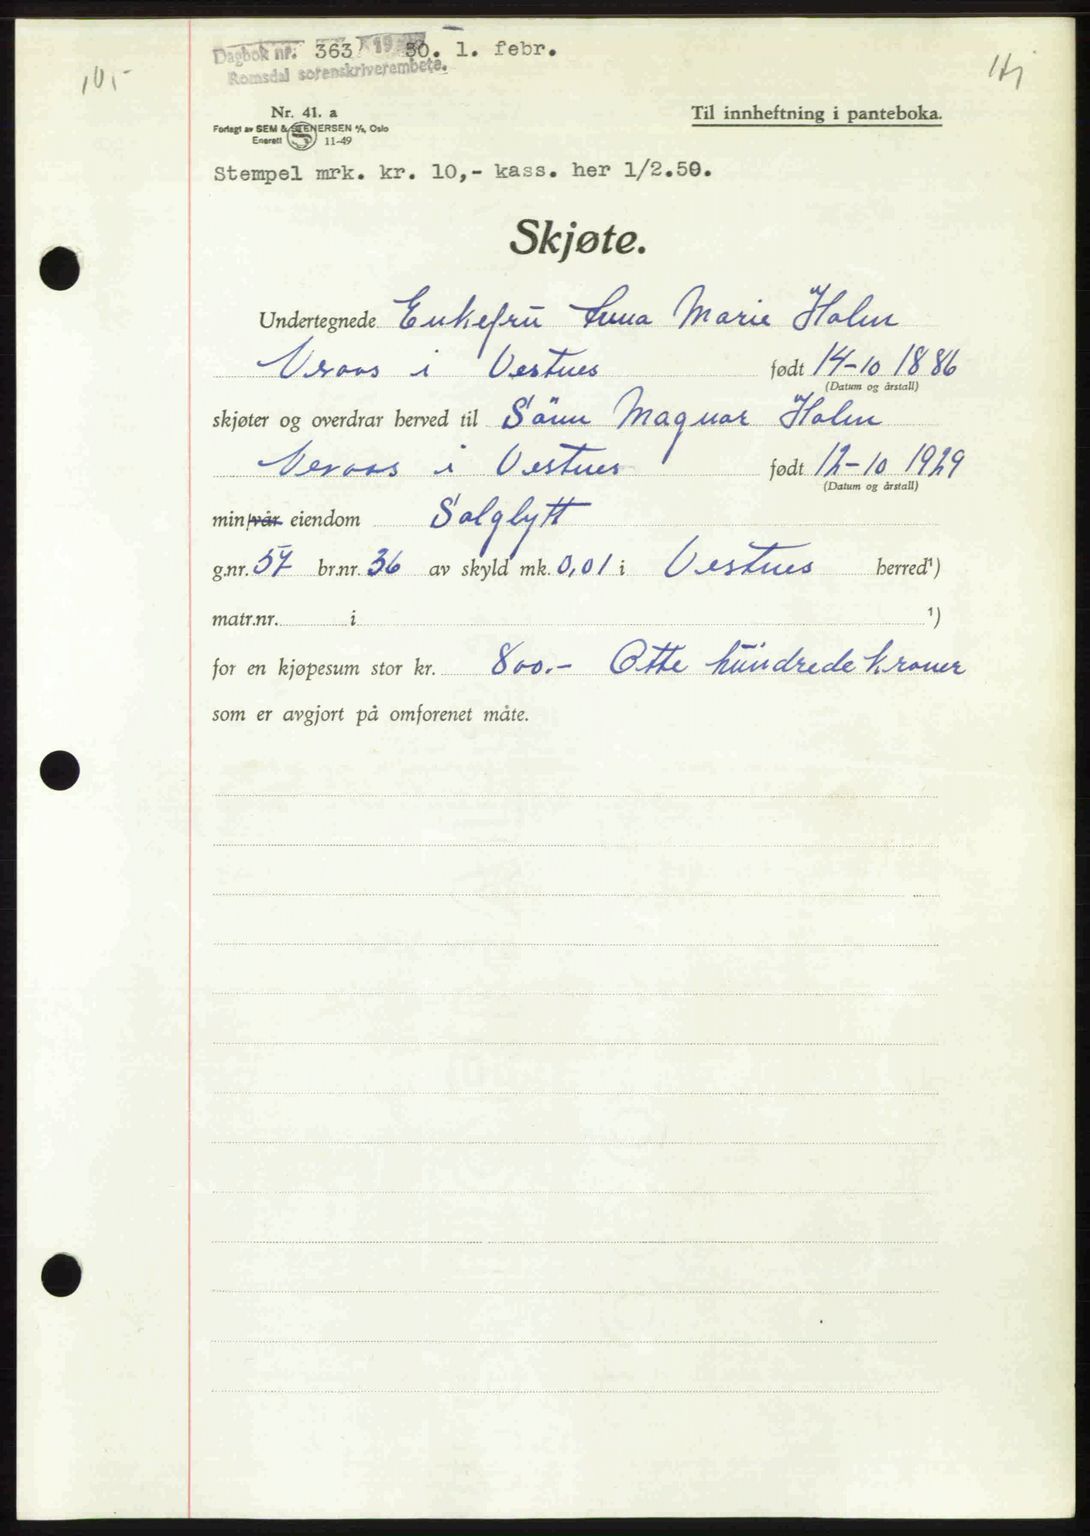 Dagbok nr. 363 19 50. 1. febr.
Romsdal sorenskriverembete.
10,-
Nr. 41. a
Forlagt av SEM & STENERSEN A/S, Oslo
Enerett 11-49
Til innheftning i panteboka.
Stempel mrk. kr. 10,- kass. her 1/2.50.
Skjøte.
Undertegnede Enkefru Anna Marie Holm
Veraas i Vestnes født 14-10 1886
(Datum og årstall)
skjøter og overdrar herved til Sønn Magnar Holm
Veraas i Vestnes født 12-10 1929
(Datum og årstall)
min/vår eiendom Solglytt
g.nr. 57 br.nr. 36 av skyld mk. 0,01 i Vestnes herred¹)
matr.nr. i ¹)
for en kjøpesum stor kr. 800.- Otte hundrede kroner
som er avgjort på omforenet måte.